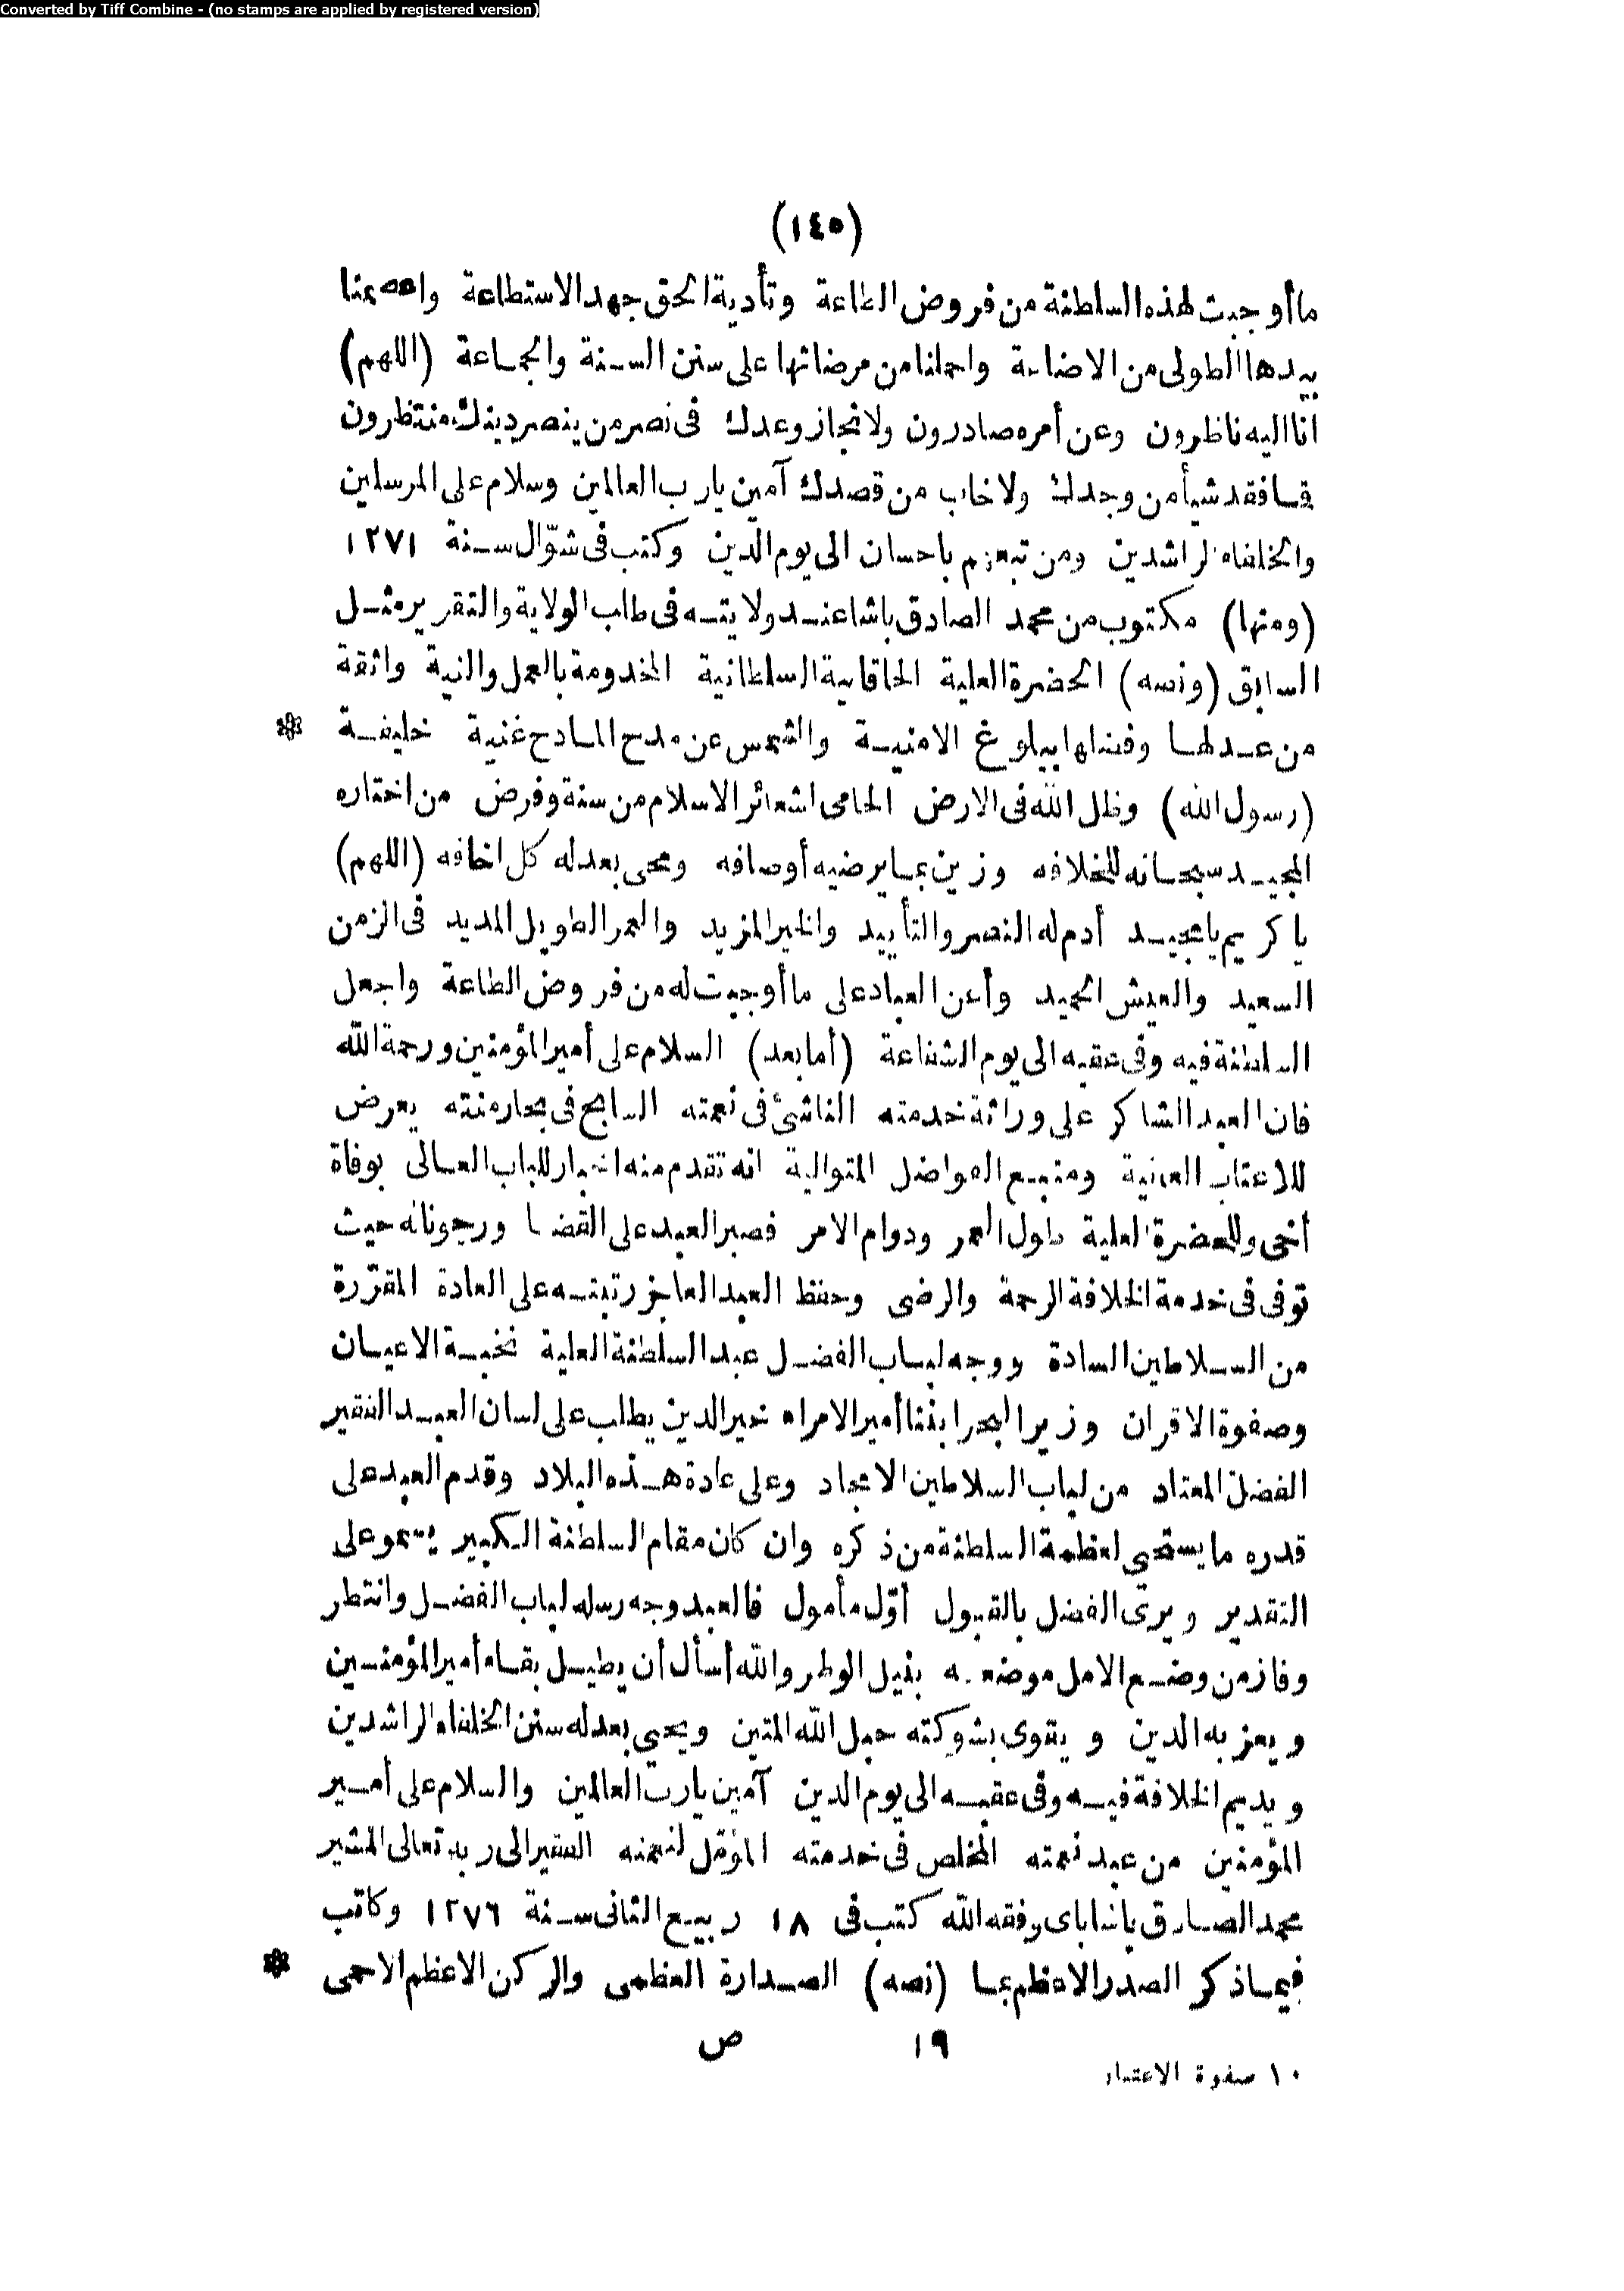 Converted by Tiff Combine - (no stamps are applied by registered version)
(١٤٥)
ما أوجبت لهذه السلطنة من فروض الطاعة وتأدية الحق جهد الاستطاعة واعصمنا
بيدها الطولى من الاضاعة واحملنا من مرضاتها على سنن السنة والجماعة (اللهم)
انا اليه ناظرون وعن أمره صادرون ولانجاز وعدك فى نصر من ينصر دينك منتظرون
فما فقد شيأ من وجدك ولا خاب من قصدك آمين يارب العالمين وسلام على المرسلين
والخلفاء الراشدين ومن تبعهم باحسان الى يوم الدين وكتب فى شوّال سنة ١٢٧١
(ومنها) مكتوب من محمد الصادق باشا عند ولايته فى طلب الولاية والتقرير مثل
السابق (ونصه) الحضرة العلية الخاقانية السلطانية المخدومة بالعمل والنية واثقة
من عدلها وفضلها ببلوغ الامنية والشمس عن مدح المادح غنية خليفة *
(رسول الله) وظل الله فى الارض الحامى لشعائر الاسلام من سنة وفرض من اختاره
المجيد سبحانه للخلافه وزين بما يرضيه أوصافه ومحى بعدله كل اخافه (اللهم)
يا كريم يا مجيد أدم له النصر والتأييد والخير المزيد والعمر الطويل المديد فى الزمن
السعيد والعيش الحميد وأعن العباد على ما أوجبت له من فروض الطاعة واجعل
السلطنة فيه وفى عقبه الى يوم الشفاعة (أما بعد) السلام على أمير المؤمنين ورحمة الله
فان العبد الشاكر على وراثة خدمته الناشئ فى نعمته السابح فى بحار منته يعرض
للاعتاب العلية ومنبع الفواضل المتوالية انه تقدم منه اخبار للباب العالى بوفاة
أخى وللحضرة العلية طول العمر ودوام الامر فصبر العبد على القضا ورجونا له حيث
توفى فى خدمة الخلافة الرحمة والرضى وحفظ العبد العاجز رتبته على العادة المقرّرة
من السلاطين السادة ووجه لباب الفضل عبد السلطنة العلية نخبة الاعيان
وصفوة الاقران وزير البحر ابننا أمير الامراء خير الدين يطلب على لسان العبد الفقير
الفضل المعتاد من لباب السلاطين الامجاد وعلى عادة هذه البلاد وقدم العبد على
قدره ما يستحى لعظمة السلطنة من ذكره وان كان مقام السلطنة الكبير يسمو على
التقدير ويرى الفضل بالقبول أوّل مأمول فالعبد وجه رسله لباب الفضل وانتظر
وفاز من وضع الامل موضعه بنيل الوطر والله أسأل أن يطيل بقاء أمير المؤمنين
ويعز به الدين ويقوى بشوكته حبل الله المتين ويحيى بعدله سنن الخلفاء الراشدين
ويديم الخلافة فيه وفى عقبه الى يوم الدين آمين يارب العالمين والسلام على أمير
المؤمنين من عبد نعمته المخلص فى خدمته المؤمّل لنعمته الفقير الى ربه تعالى المشير
محمد الصادق باشا باى وفقه الله كتب فى ١٨ ربيع الثانى سنة ١٢٧٦ وكاتب
فيما ذكر الصدر الاعظم بما (نصه) الصدارة العظمى والركن الاعظم الاحمى *
١٩ ص
١٠ صفوة الاعتبار